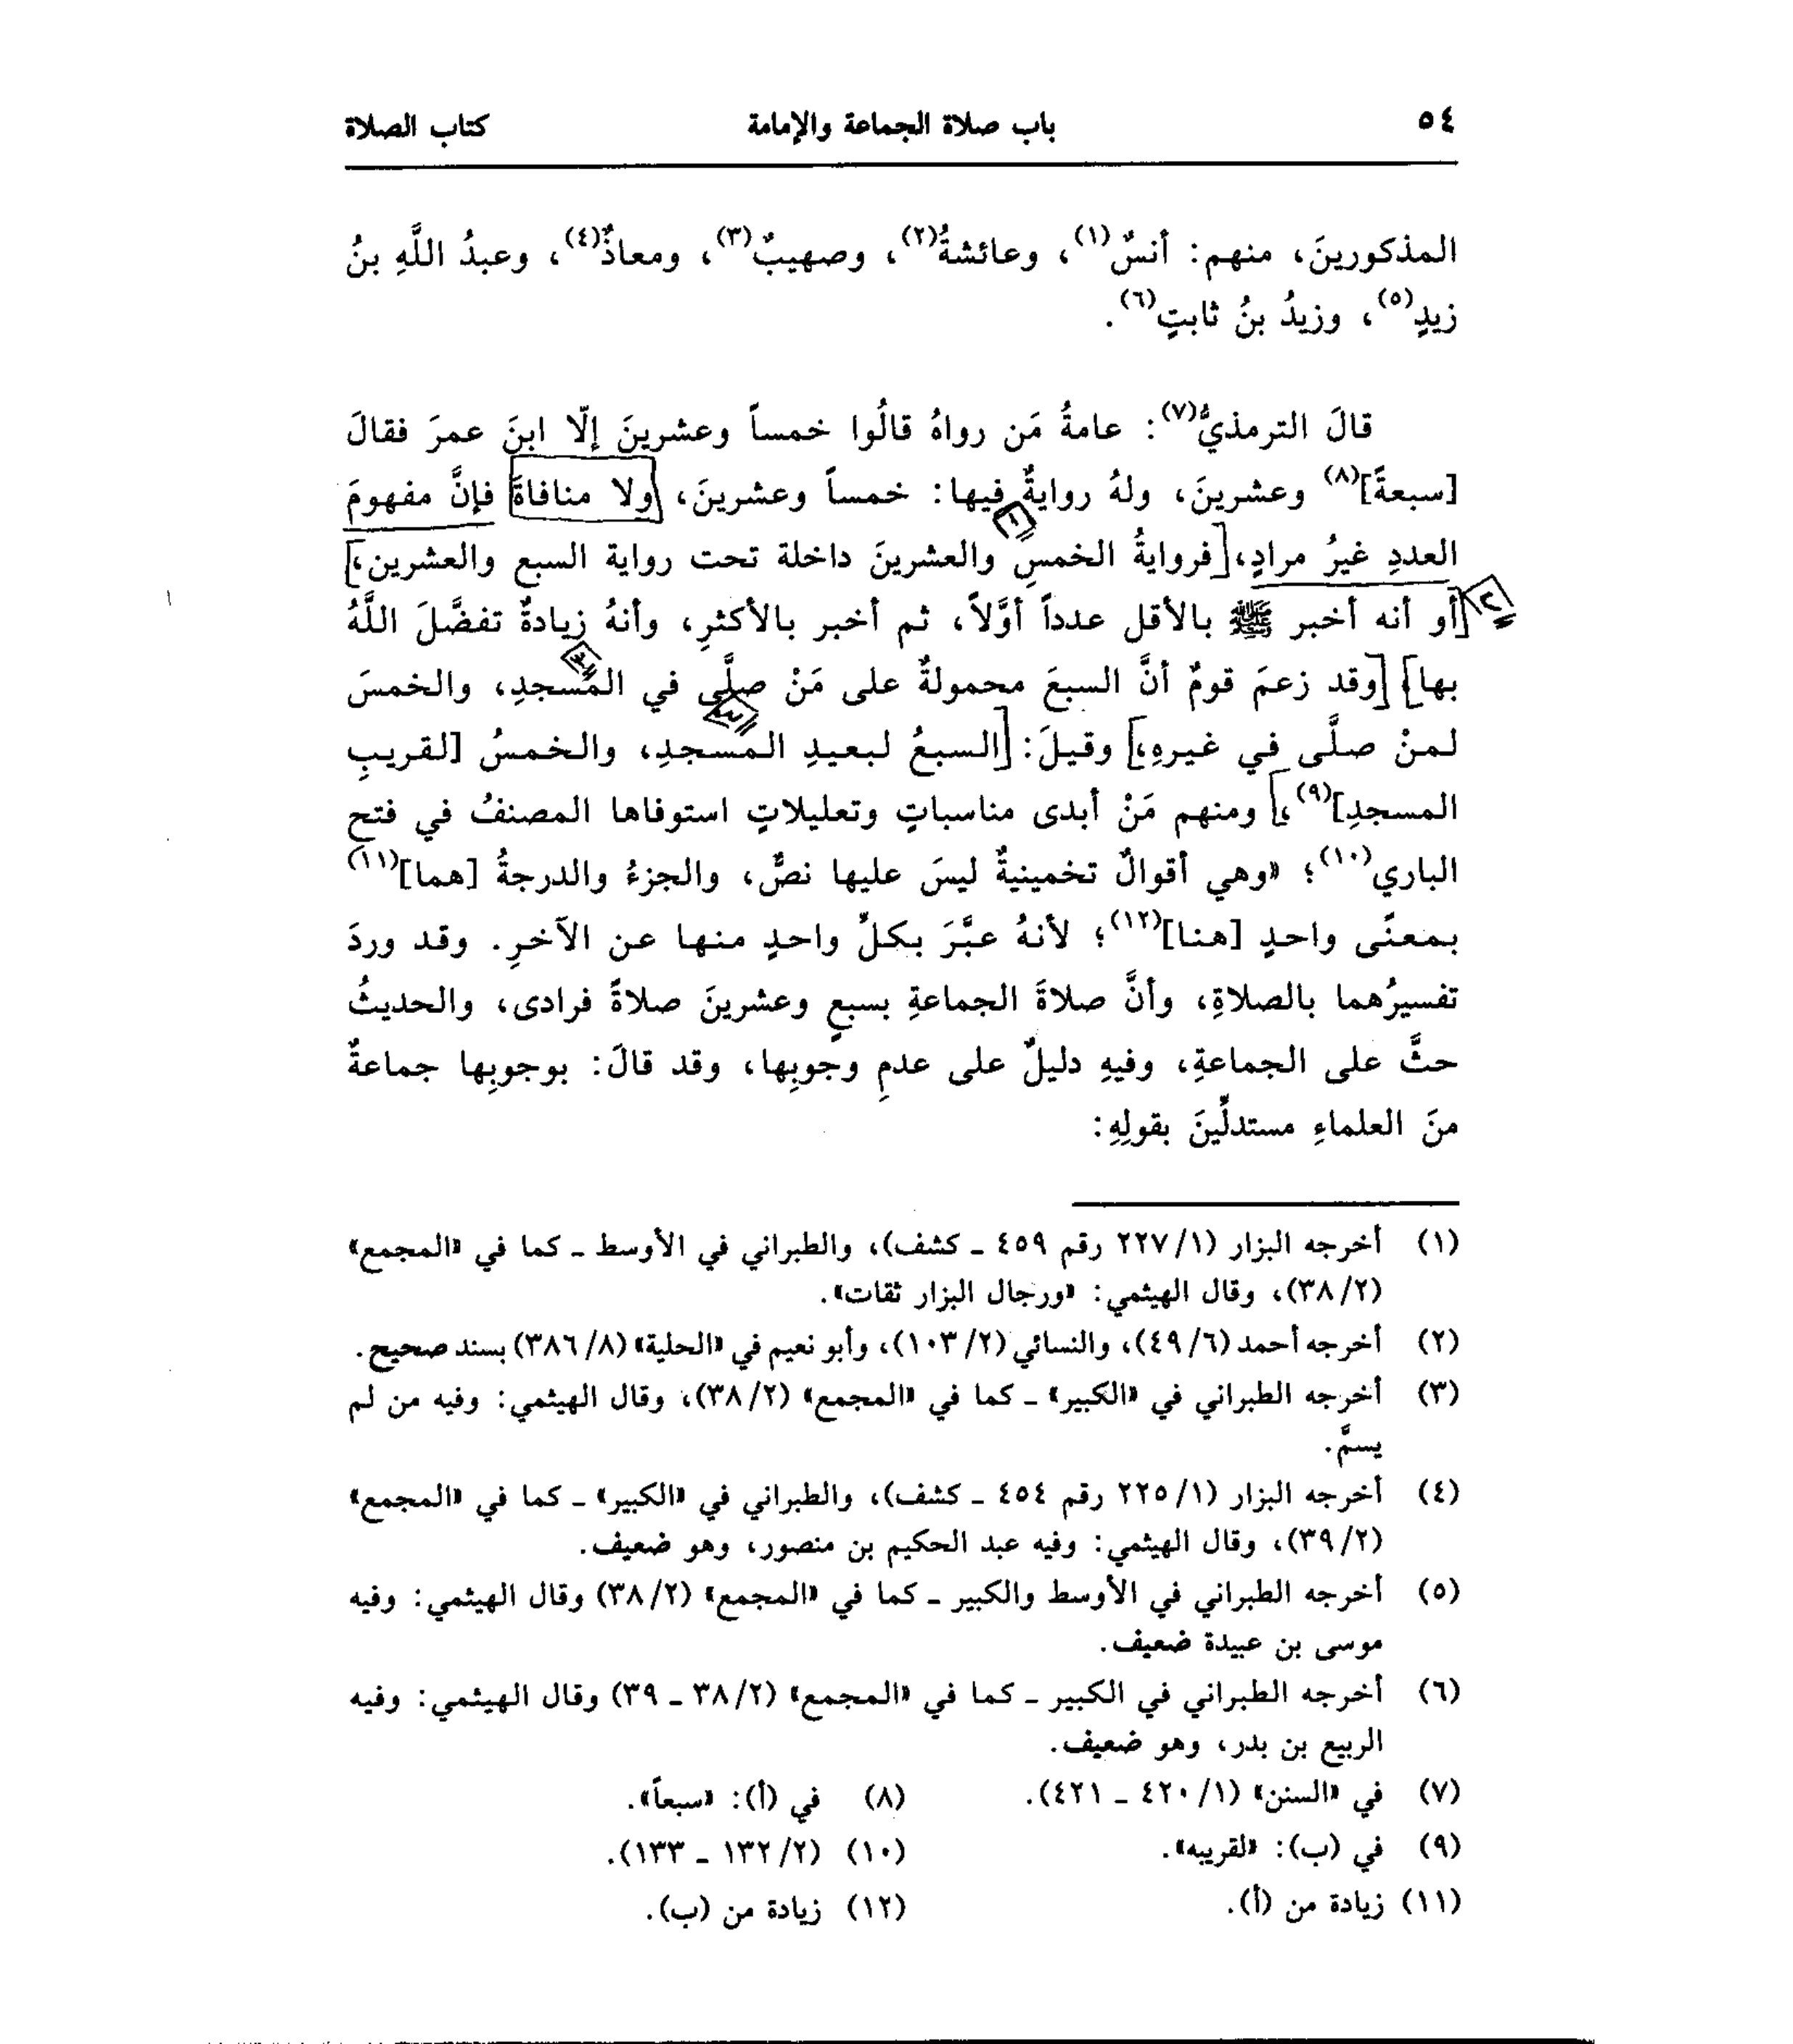 ٥٤ باب صلاة الجماعة والإمامة كتاب الصلاة
المذكورينَ، منهم: أنسٌ(١)، وعائشةُ(٢)، وصهيبٌ(٣)، ومعاذٌ(٤)، وعبدُ اللَّهِ بنُ
زيدٍ(٥)، وزيدُ بنُ ثابتٍ(٦).
قالَ الترمذيُّ(٧): عامةُ مَن رواهُ قالُوا خمساً وعشرينَ إلّا ابنَ عمرَ فقالَ
[سبعةً](٨) وعشرينَ، ولهُ روايةٌ فيها: خمساً وعشرينَ، ولا منافاةَ فإنَّ مفهومَ
١
العددِ غيرُ مرادٍ، [فروايةُ الخمسِ والعشرينَ داخلة تحت رواية السبع والعشرين،]
٢
[أو أنه أخبر ﷺ بالأقل عدداً أوَّلاً، ثم أخبر بالأكثرِ، وأنهُ زيادةٌ تفضَّلَ اللَّهُ
بها] [وقد زعمَ قومٌ أنَّ السبعَ محمولةٌ على مَنْ صلَّى في المسجدِ، والخمسَ
لمنْ صلَّى في غيرهِ،] وقيلَ: [السبعُ لبعيدِ المسجدِ، والخمسُ [لقريبِ
المسجدِ](٩)،] ومنهم مَنْ أبدى مناسباتٍ وتعليلاتٍ استوفاها المصنفُ في فتحِ
الباري(١٠)؛ «وهي أقوالٌ تخمينيةٌ ليسَ عليها نصٌّ، والجزءُ والدرجةُ [هما](١١)
بمعنًى واحدٍ [هنا](١٢)؛ لأنهُ عبَّرَ بكلِّ واحدٍ منها عن الآخرِ. وقد وردَ
تفسيرُهما بالصلاةِ، وأنَّ صلاةَ الجماعةِ بسبعٍ وعشرينَ صلاةً فرادى، والحديثُ
حثَّ على الجماعةِ، وفيهِ دليلٌ على عدمِ وجوبِها، وقد قالَ: بوجوبِها جماعةٌ
منَ العلماءِ مستدلِّينَ بقولِهِ:
(١) أخرجه البزار (١/ ٢٢٧ رقم ٤٥٩ ـ كشف)، والطبراني في الأوسط ـ كما في «المجمع»
(٢/ ٣٨)، وقال الهيثمي: «ورجال البزار ثقات».
(٢) أخرجه أحمد (٦/ ٤٩)، والنسائي (٢/ ١٠٣)، وأبو نعيم في «الحلية» (٨/ ٣٨٦) بسند صحيح.
(٣) أخرجه الطبراني في «الكبير» ـ كما في «المجمع» (٢/ ٣٨)، وقال الهيثمي: وفيه من لم
يسمَّ.
(٤) أخرجه البزار (١/ ٢٢٥ رقم ٤٥٤ ـ كشف)، والطبراني في «الكبير» ـ كما في «المجمع»
(٢/ ٣٩)، وقال الهيثمي: وفيه عبد الحكيم بن منصور، وهو ضعيف.
(٥) أخرجه الطبراني في الأوسط والكبير ـ كما في «المجمع» (٢/ ٣٨) وقال الهيثمي: وفيه
موسى بن عبيدة ضعيف.
(٦) أخرجه الطبراني في الكبير ـ كما في «المجمع» (٢/ ٣٨ ـ ٣٩) وقال الهيثمي: وفيه
الربيع بن بدر، وهو ضعيف.
(٧) في «السنن» (١/ ٤٢٠ ـ ٤٢١). (٨) في (أ): «سبعاً».
(٩) في (ب): «لقريبه». (١٠) (٢/ ١٣٢ ـ ١٣٣).
(١١) زيادة من (أ). (١٢) زيادة من (ب).